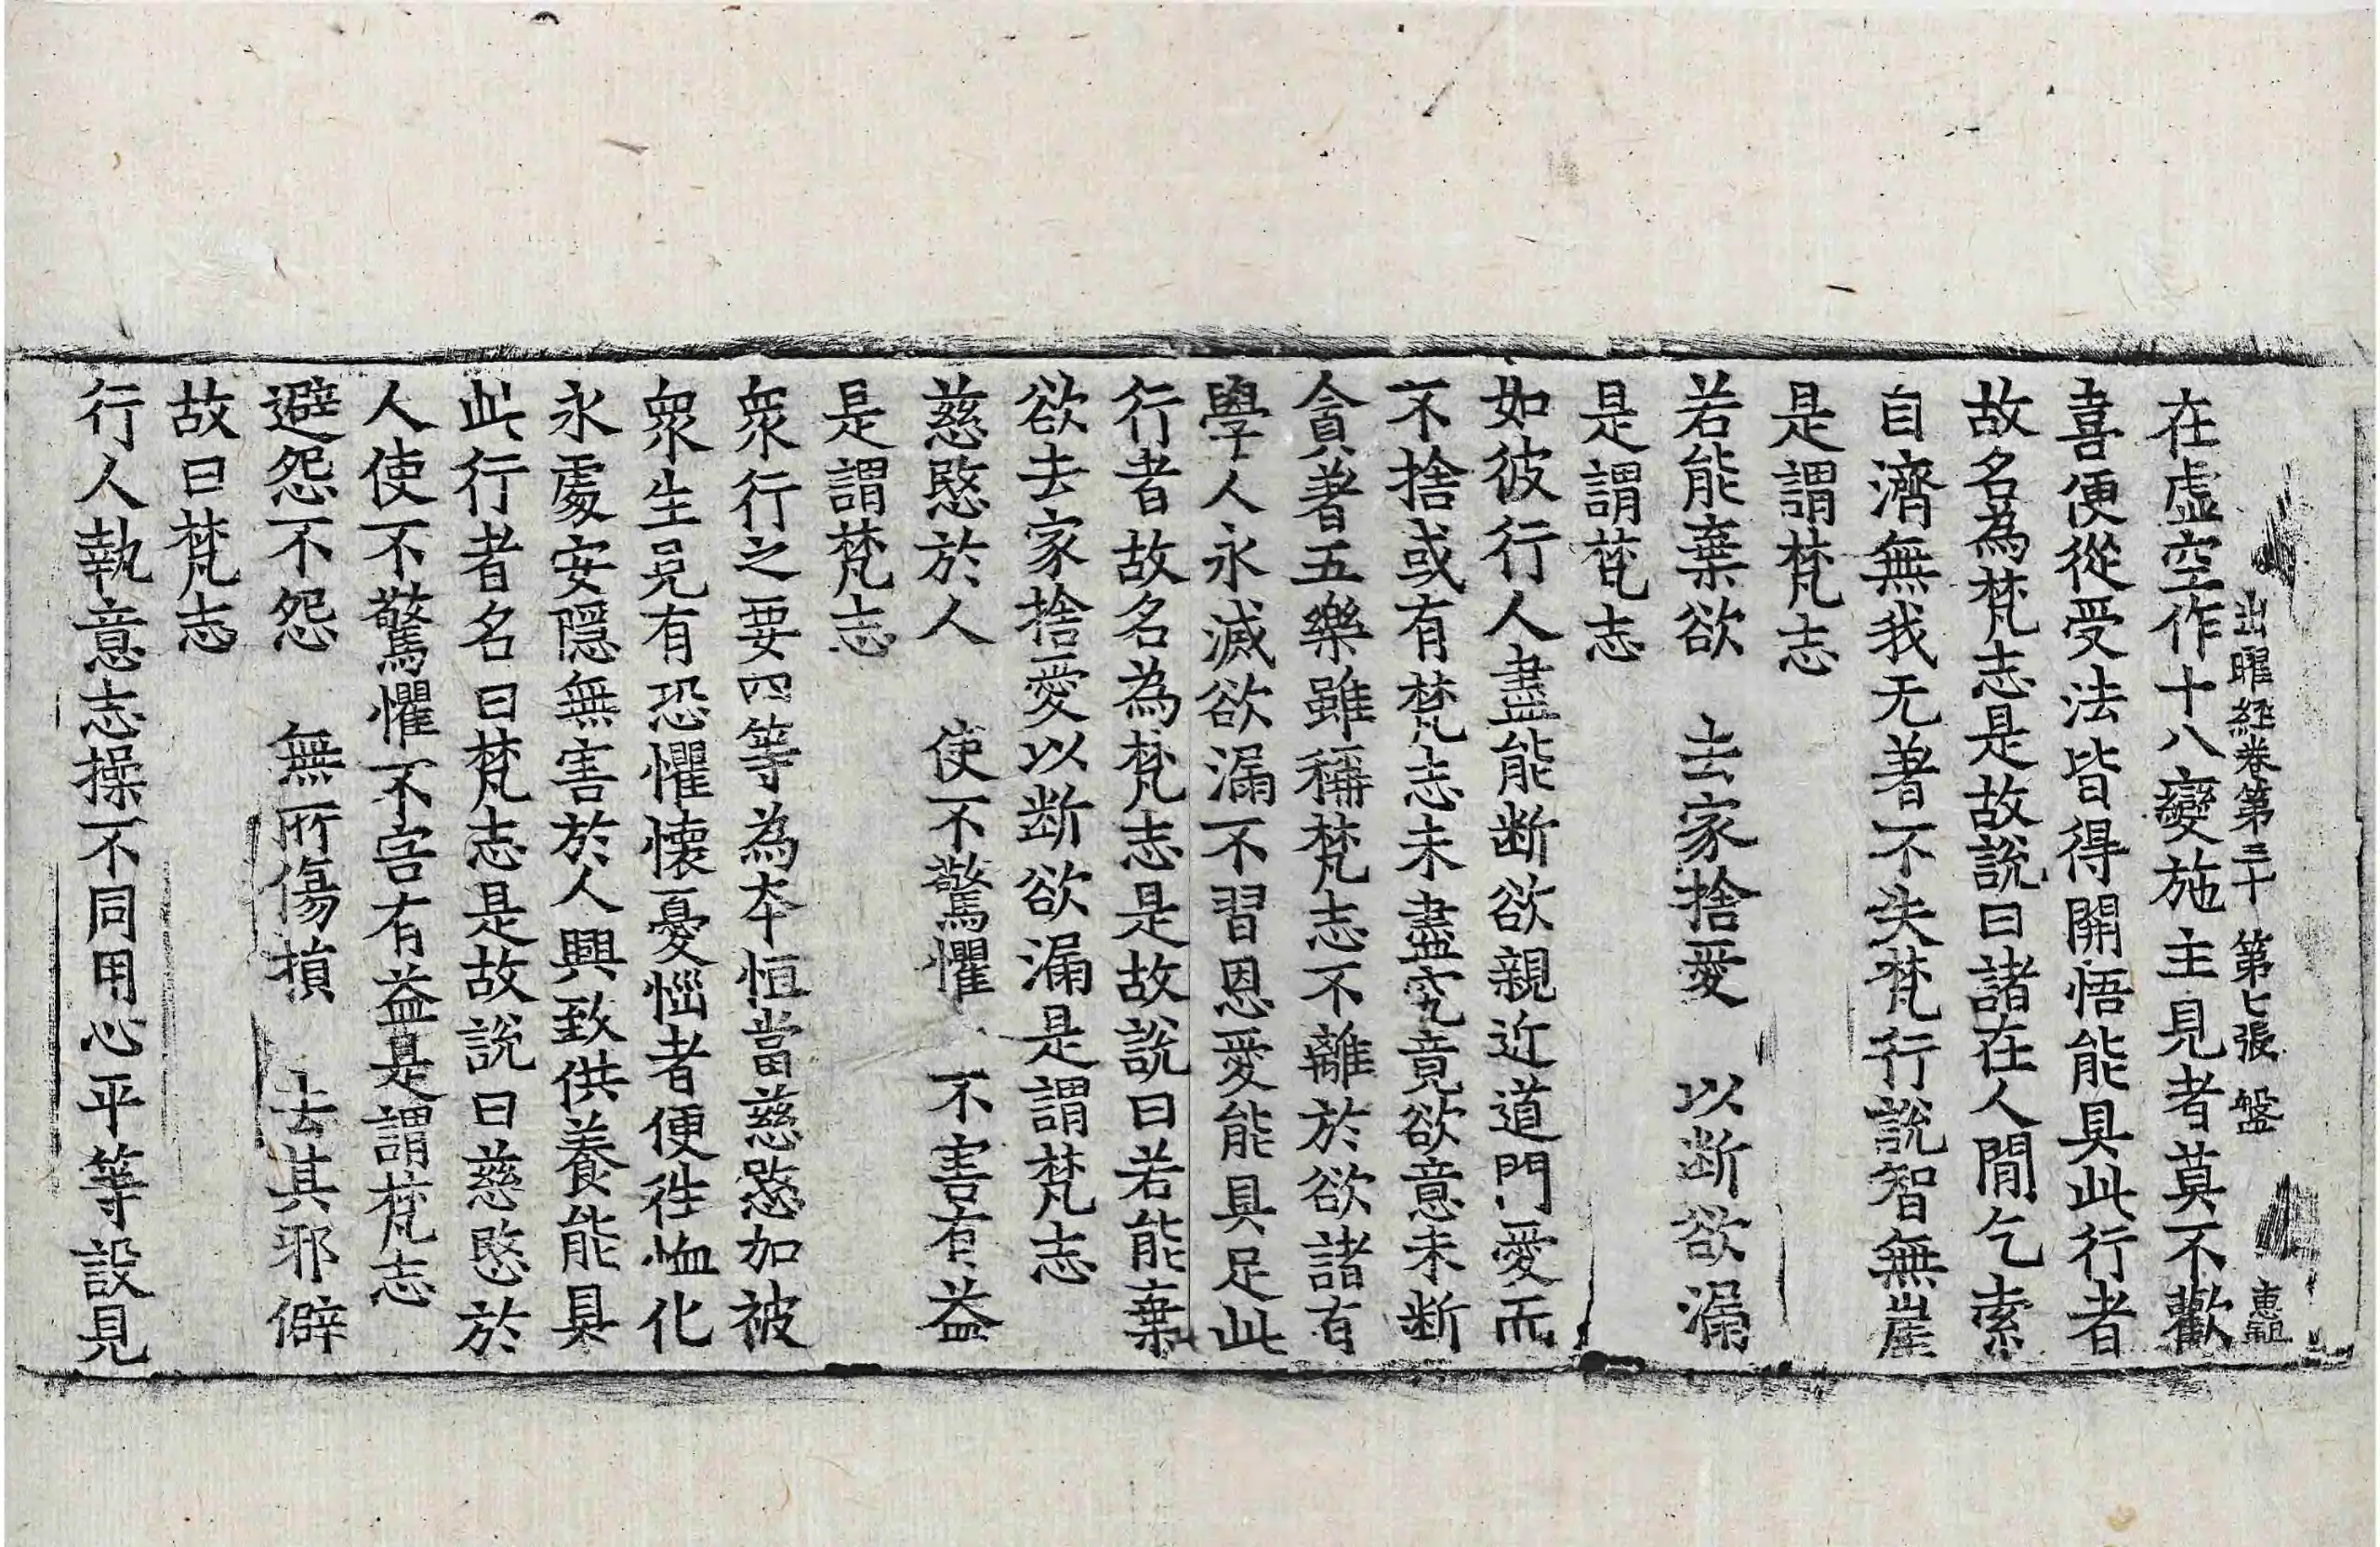 出曜經卷第三十 第七張 盤 惠䂓
在虛空作十八變施主見者莫不歡
喜便從受法皆得開悟能具此行者
故名為梵志是故說曰諸在人閒乞索
自濟無我无著不失梵行說智無崖
是謂梵志
若能棄欲 去家捨愛 以斷欲漏
是謂梵志
如彼行人盡能断欲親近道門愛而
不捨或有梵志未盡究竟欲意未断
貪著五樂雖稱梵志不離於欲諸有
學人永滅欲漏不習恩愛能具足此
行者故名為梵志是故說曰若能棄
欲去家捨愛以断欲漏是謂梵志
慈愍於人 使不驚懼 不害有益
是謂梵志
衆行之要四等為本恒當慈愍加被
衆生見有恐懼懷憂惱者便往恤化
永處安隱無害於人興致供養能具
此行者名曰梵志是故說曰慈愍於
人使不驚懼不害有益是謂梵志
避怨不怨 無所傷損 去其邪僻
故曰梵志
行人執意志操不同用心平等設見